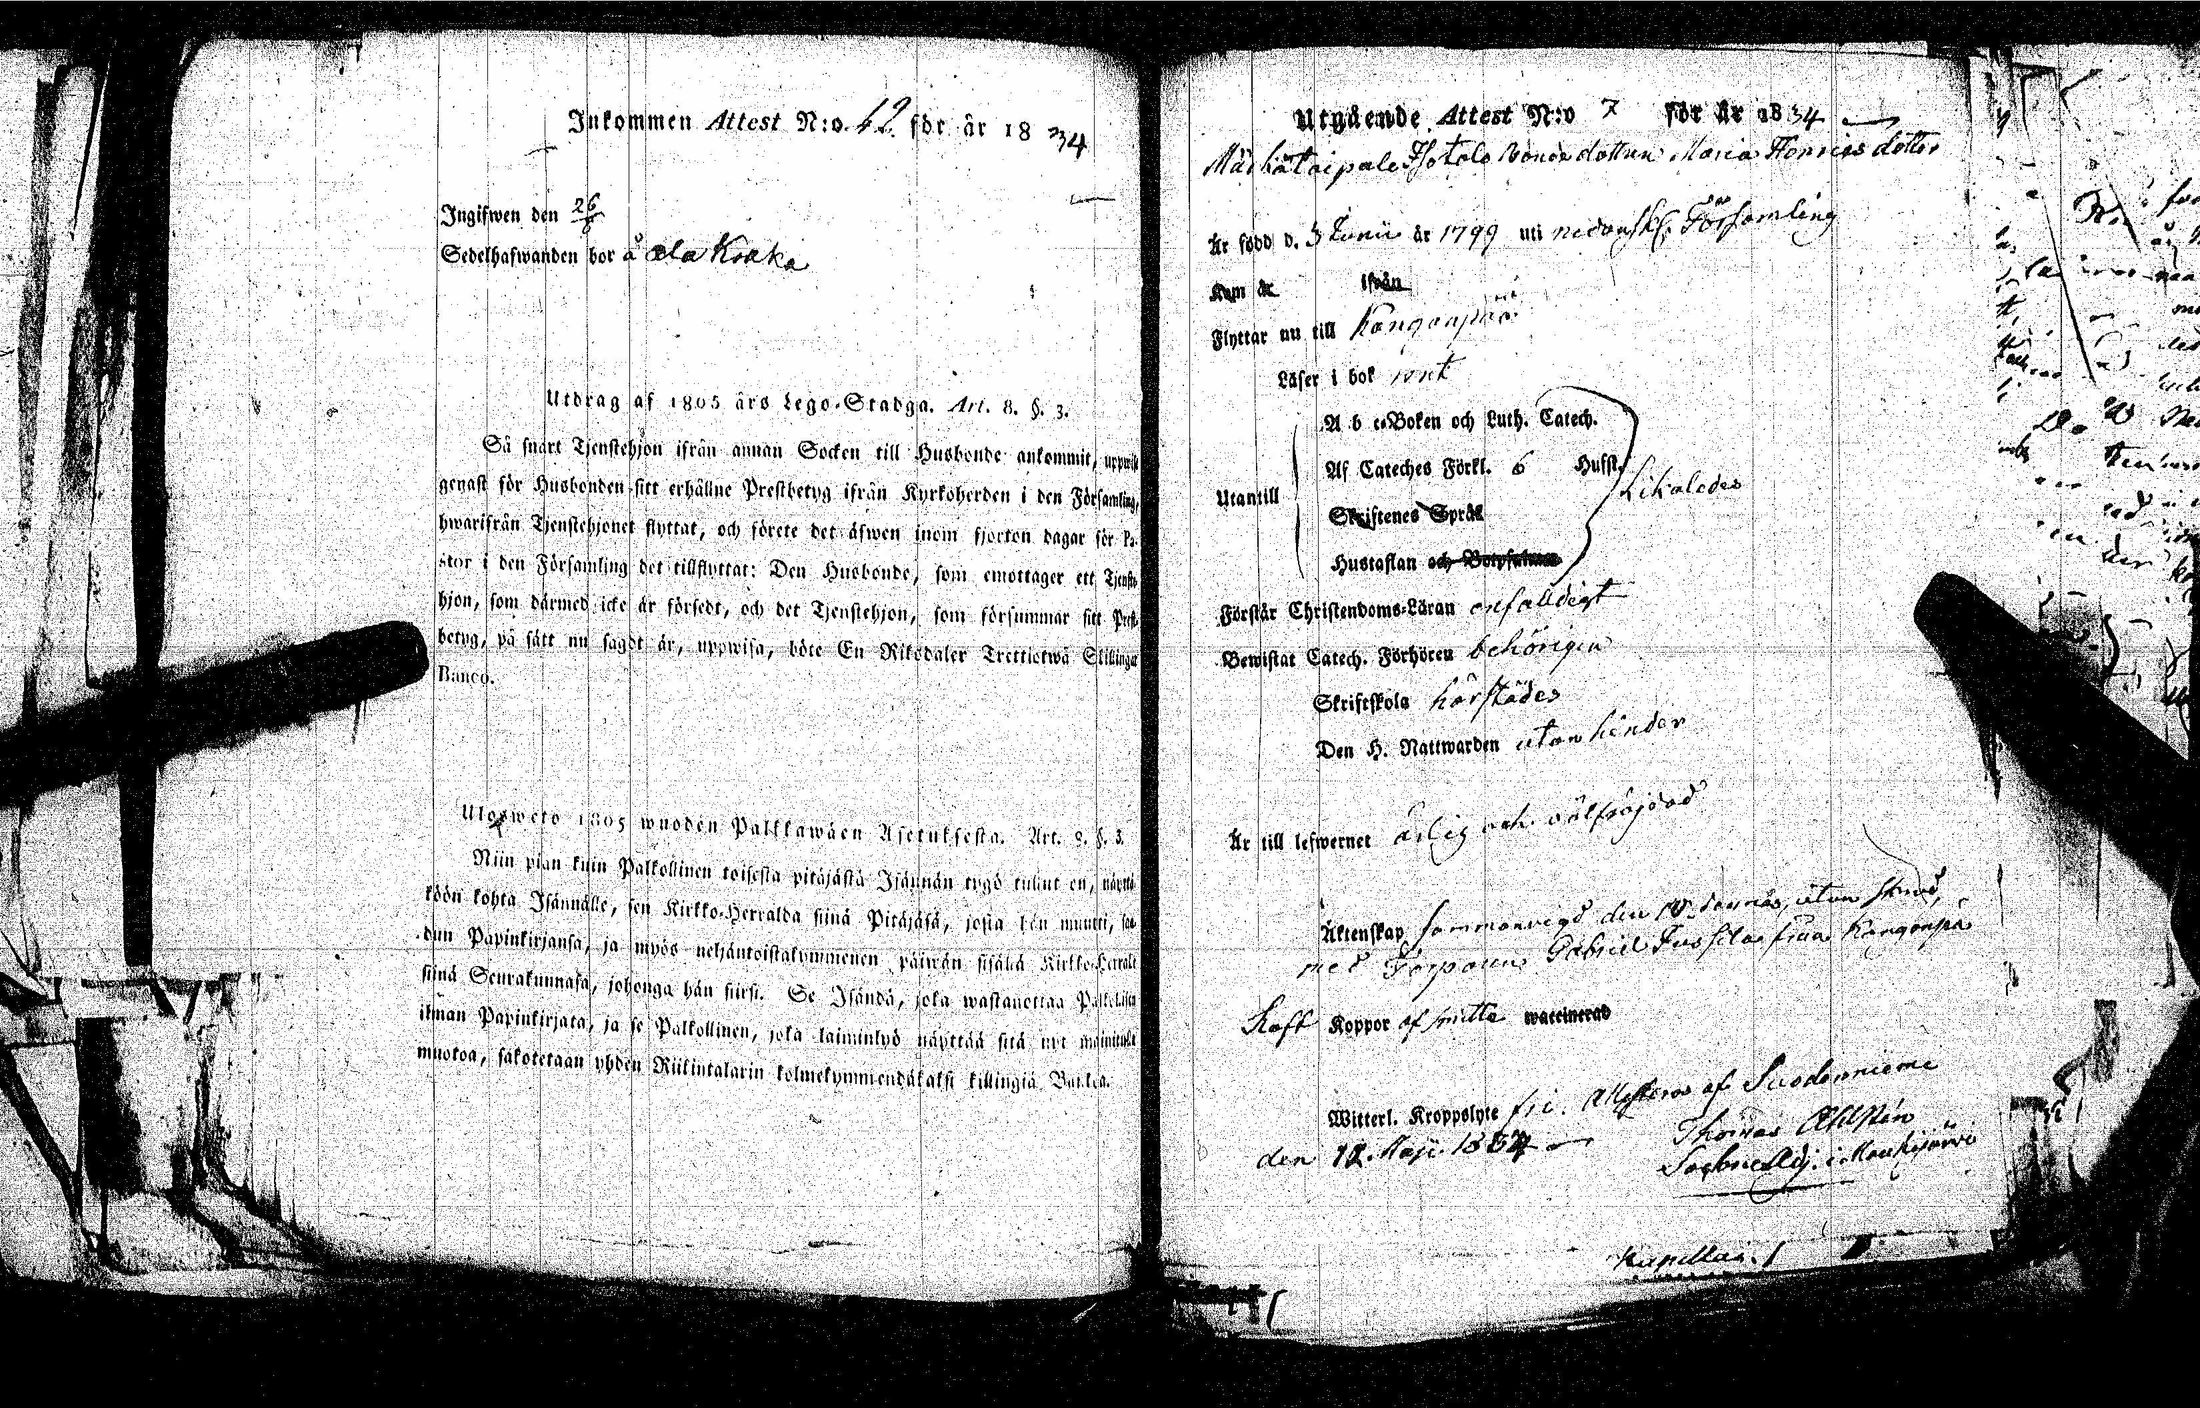 Inkommen Attest N:o 42 för år 1834
Ingifwen den 26/6
Sedelhafwanden bor å ala Kraka
Utdrag af 1805 års Lego-Stadga. Art. 8. §. 3.
Så snart Tjenstehjon ifrån annan Socken till Husbonde ankommit, uppwise
genast för Husbonden sitt erhållne Prestbetyg ifrån Kyrkoherden i den Församling,
hwarifrån Tjenstehjonet flyttat, och förete det äfwen inom fjorton dagar för Pa-
stor i den Församling det tillflyttat: Den Husbonde, som emottager ett Tjenste-
hjon, som därmed icke är försedt, och det Tjenstehjon, som försummar sitt Prest-
betyg, på sätt nu sagdt är, uppwisa, böte En Riksdaler Trettiotwå Skillingar
Banco.
Ulosweto 1805 wuoden Palkkawäen Asetuksesta. Art. 8. §. 3.
Niin pian kuin Palkollinen toisesta pitäjästä Isännän tygö tullut on, näyttä-
köön kohta Isännälle, sen Kirkko-Herralda siinä Pitäjäsä, josta hän muutti, saa-
dun Papinkirjansa, ja myös neljäntoistakymmenen päiwän sisällä Kirkko-Herralle
siinä Seurakunnasa, johonga hän siirsi. Se Isändä, joka wastanottaa Palkollisen
ilman Papinkirjata, ja se Palkollinen, joka laiminlyö näyttää sitä nyt mainitulla
muotoa, sakotetaan yhden Riikintalarin kolmekymmendäkaksi killingiä Bankoa.
Utgående Attest N:o 7 för år 1834
Isotalo Bonde dottren Maria Henricsdotter
Är född d. 5 Junii år 1799 uti nedanskr. Församling
Kom år ifrån
Flyttar nu till Kangonpää
Läser i bok rent
A b c-Boken och Luth. Catech.
Af Cateches Förkl. 6 Hufst.
Utantill Likaledes
Skriftenes Språk
Hustaflan och Botpsalmer
Förstår Christendoms-Läran enfalldigt
Bewistat Catech. Förhören behörigen
Skriftskola härstädes
Den H. Nattwarden utan hinder
Är till lefwernet ärlig och välfräjdad
Äktenskap sammanvigd den utan
med Torparen Gabriel från Kangonpä
Haft Koppor af smitta waccinerad
Witterl. Kroppslyte fri. Attesteras af Suodenniemi
den 12 Maji 1834 Thomas Ahlsten
i Mouhijärvi
Kapellai